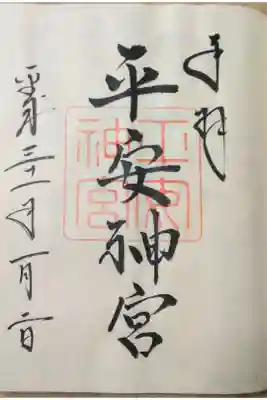 奉拝
平安神宮
平成三十一年一月二日
神宮